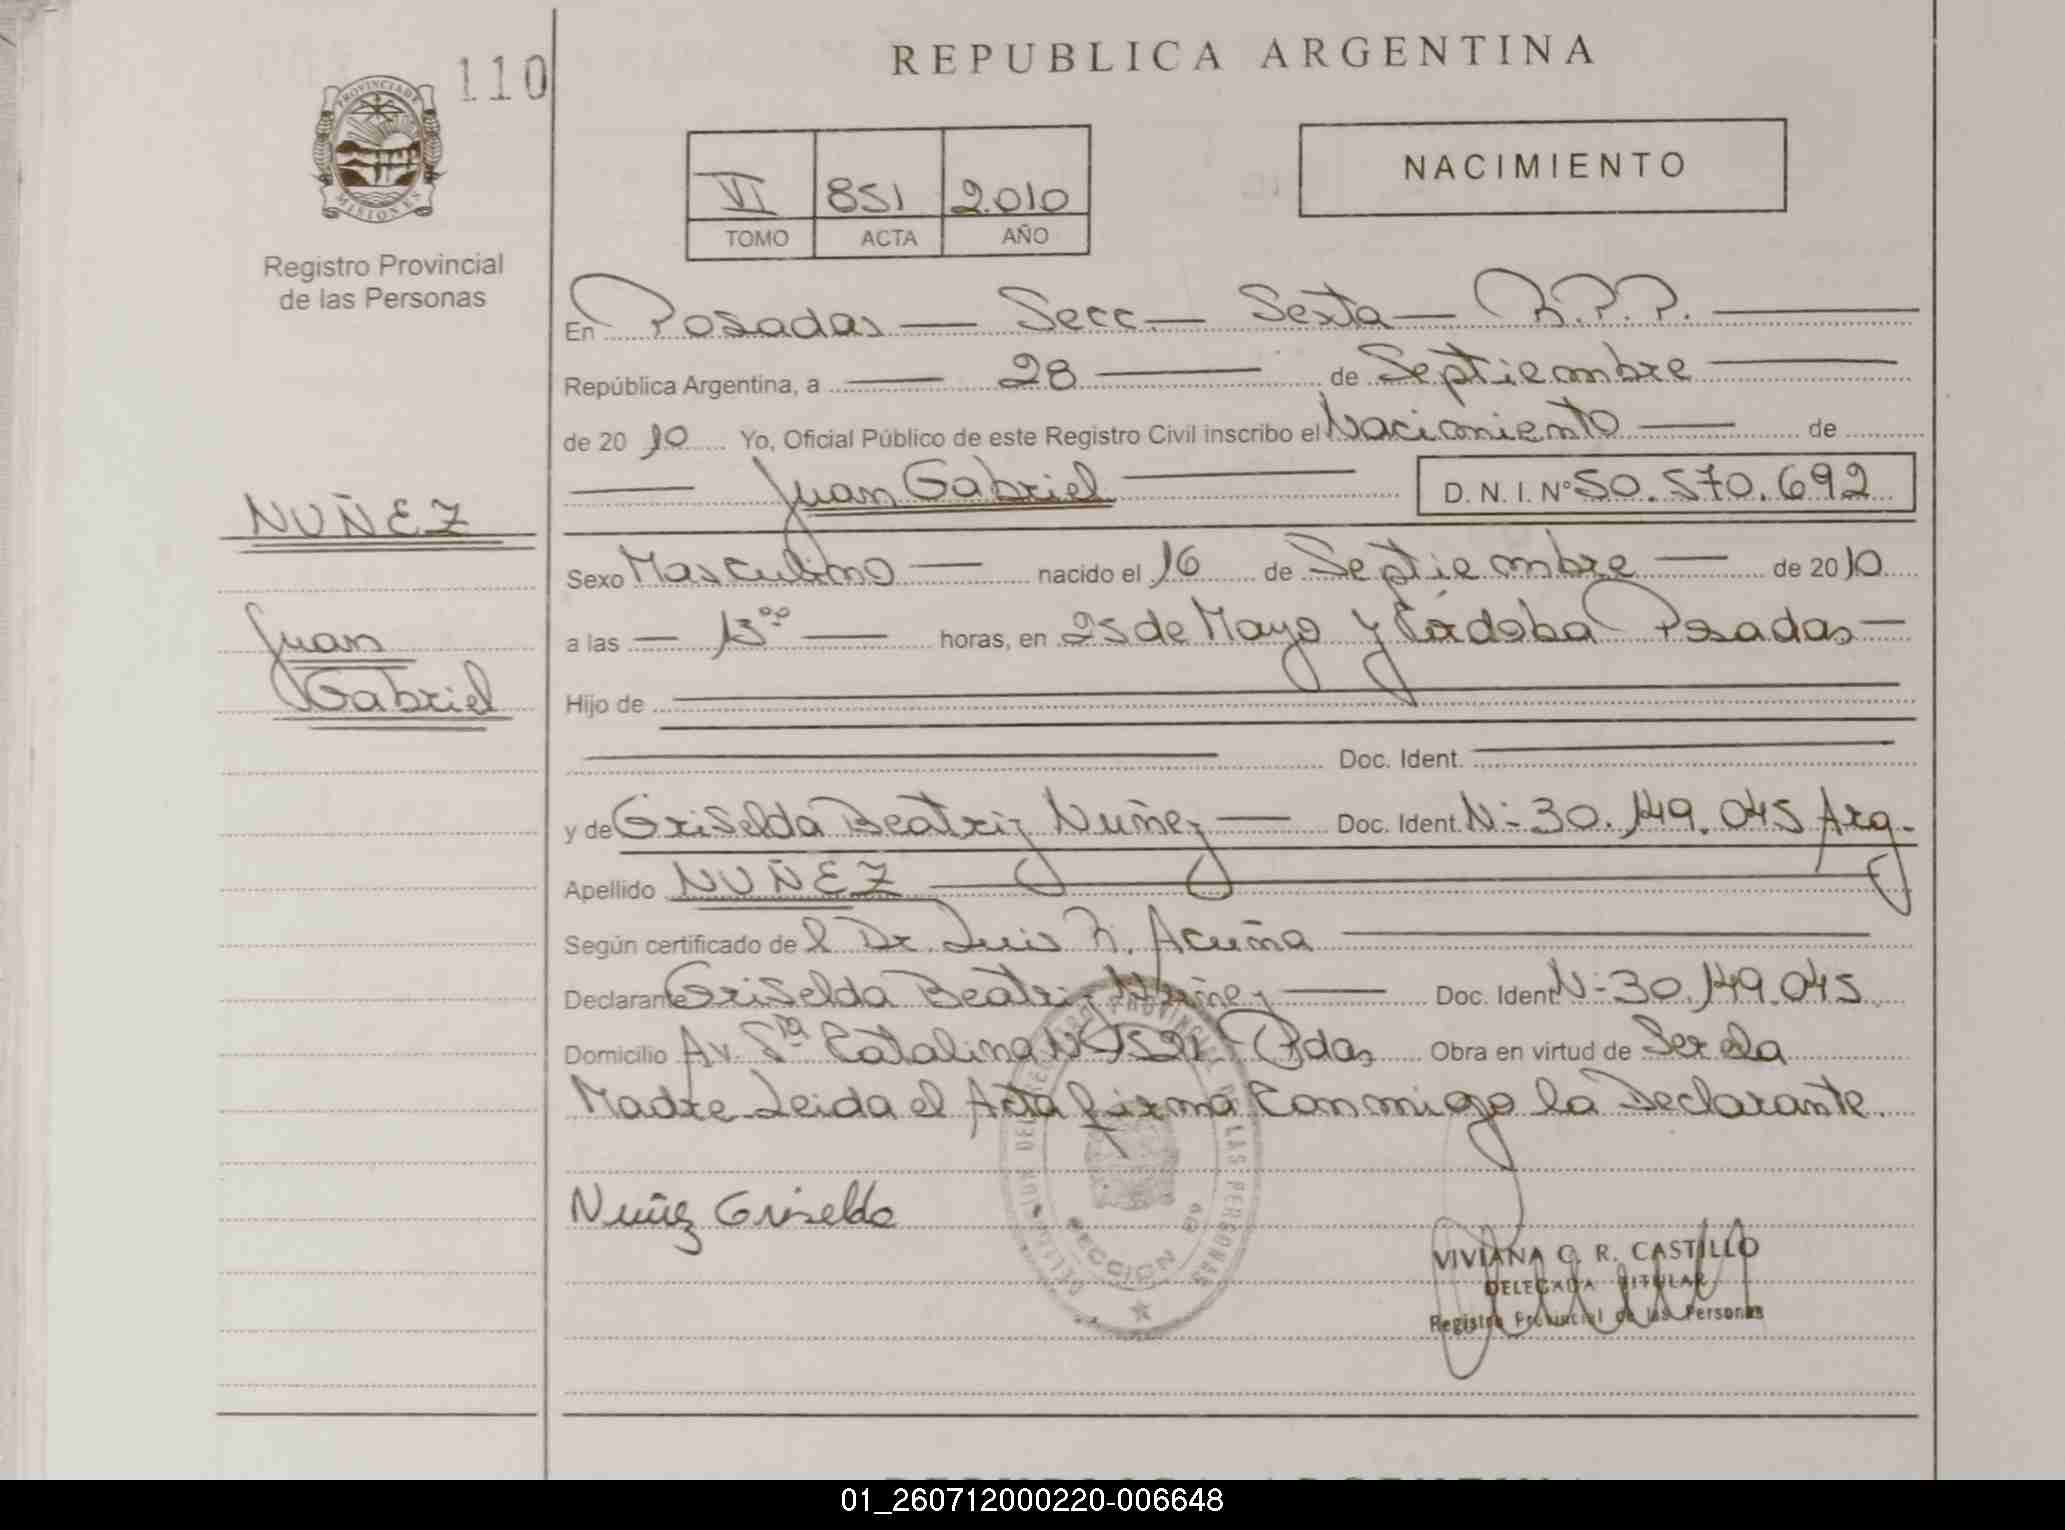 110
REPUBLICA ARGENTINA
PROVINCIA DE
MISIONES
Registro Provincial
de las Personas
NACIMIENTO
VI 851 2.010
TOMO ACTA AÑO
En Posadas — Secc. — Sexta — R.P.P. —
República Argentina, a — 28 — de Septiembre —
de 20 10 Yo, Oficial Público de este Registro Civil inscribo el Nacimiento — de
— Juan Gabriel — D. N. I. Nº 50.570.692
NUÑEZ
Juan
Gabriel
Sexo Masculino — nacido el 16 de Septiembre — de 2010
a las — 13⁰⁰ — horas, en 25 de Mayo y Córdoba Posadas —
Hijo de
Doc. Ident.
y de Griselda Beatriz Nuñez — Doc. Ident. Nº 30.149.045 Arg.
Apellido NUÑEZ —
Según certificado de l Dr. Luis R. Acuña —
Declarante Griselda Beatriz Nuñez — Doc. Ident. Nº 30.149.045
Domicilio Av. Sta Catalina Pdas Obra en virtud de Ser la
Madre Leida el Acta firma Conmigo la Declarante.
Nuñez Griselda
DEL REGISTRO PROVINCIAL DE LAS PERSONAS
SECCION 6ª
VIVIANA C. R. CASTILLO
DELEGADA TITULAR
Registro Provincial de las Personas
01_260712000220-006648